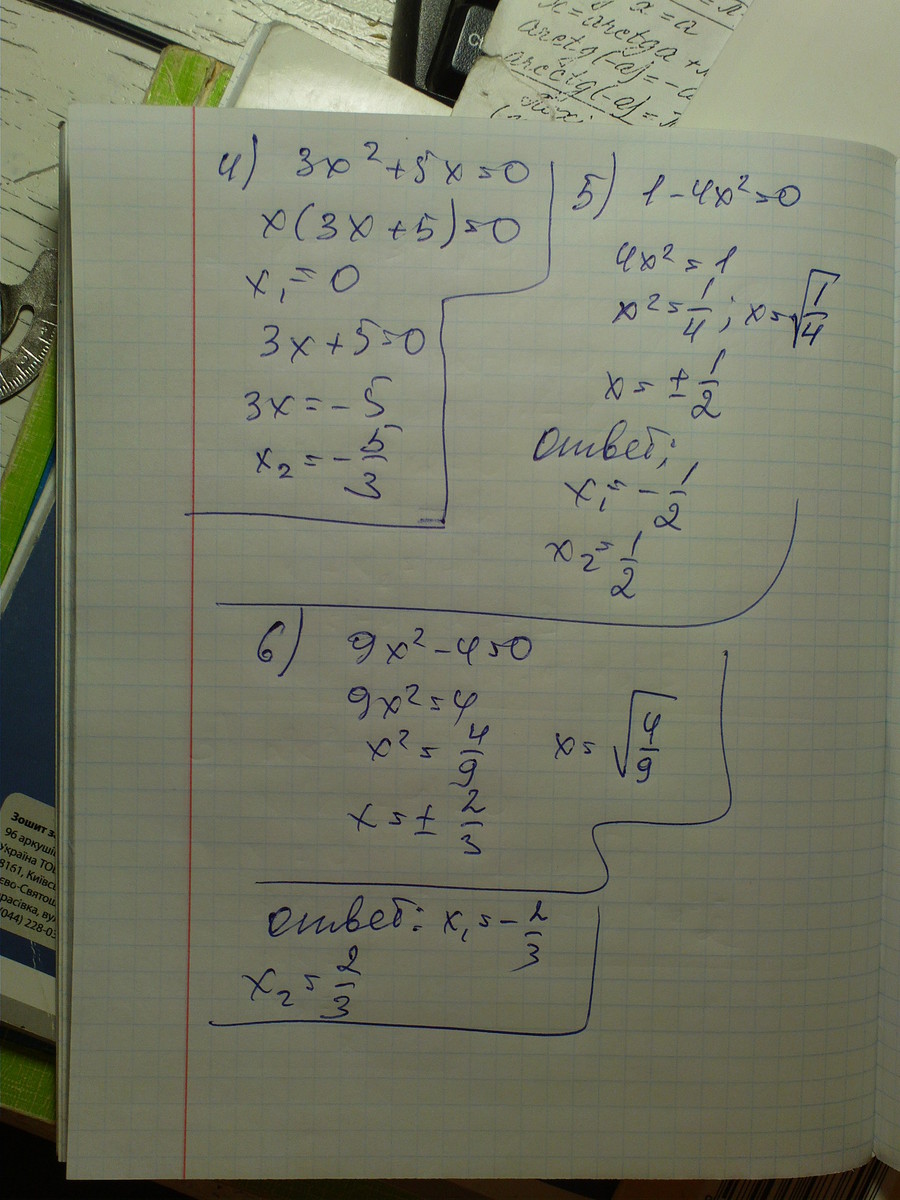 x = a
x = arctga +
arctg(-a) = -a
arcctg(-a) = π
4) 3x² + 5x = 0
x(3x + 5) = 0
x₁ = 0
3x + 5 = 0
3x = -5
x₂ = -5/3
5) 1 - 4x² = 0
4x² = 1
x² = 1/4 ; x = √(1/4)
x = ± 1/2
Ответ:
x₁ = -1/2
x₂ = 1/2
6) 9x² - 4 = 0
9x² = 4
x² = 4/9 x = √(4/9)
x = ± 2/3
Ответ: x₁ = -2/3
x₂ = 2/3
Зошит з
96 аркуші
Україна ТО
8161, Київсь
єво-Святош
расівка, вул
(044) 228-03